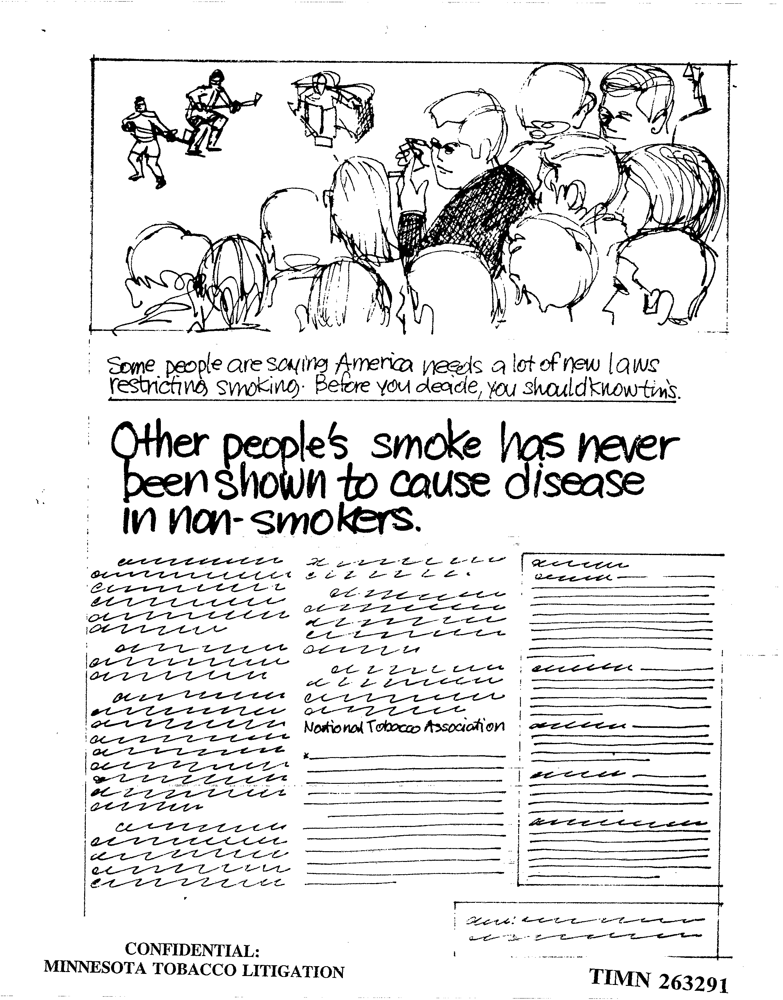 Some people are saying America needs a lot of new laws
restricting smoking. Before you decide, you should know this.
Other people's smoke has never
been shown to cause disease
in non-smokers.
National Tobacco Association
CONFIDENTIAL:
MINNESOTA TOBACCO LITIGATION
TIMN 263291